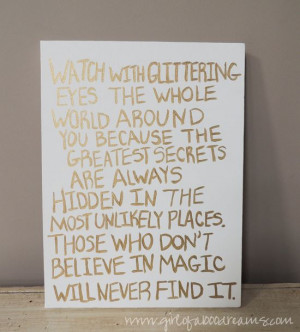 WATCH WITH GLITTERING
EYES THE WHOLE
WORLD AROUND
YOU BECAUSE THE
GREATEST SECRETS
ARE ALWAYS
HIDDEN IN THE
MOST UNLIKELY PLACES.
THOSE WHO DON'T
BELIEVE IN MAGIC
WILL NEVER FIND IT.